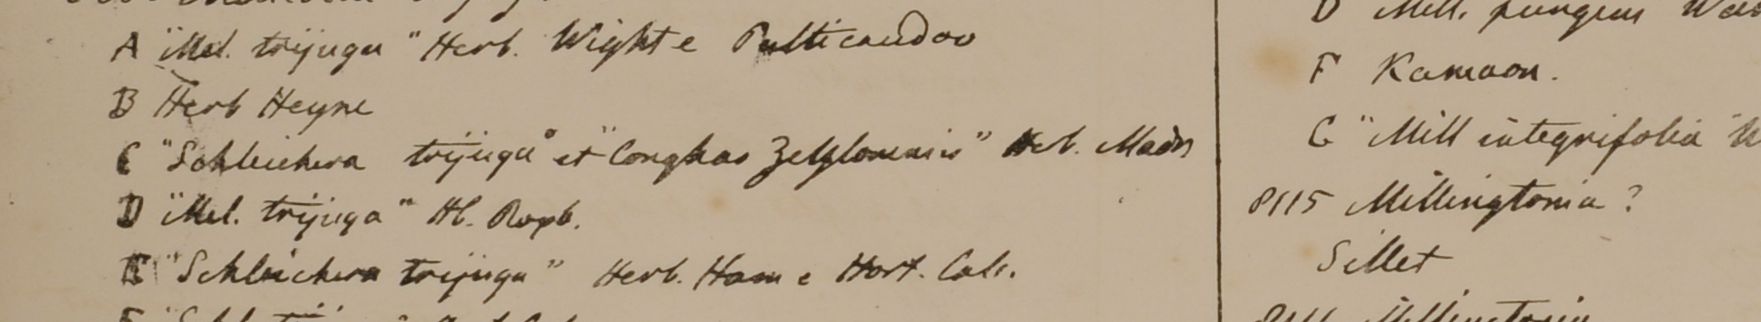 A "Mel. trijuga" Herb. Wight e
B Herb Heyne
C "Schleichera trijuga" et "Conghas Zeylonensis" Herb. Madr
D "Mel. trijuga" Hb. Roxb.
E "Schleichera trijuga" Herb. Ham e Hort. Calc.
D Mill. pungens Wall
F Kamaon.
G "Mill integrifolia"
8115 Millingtonia ?
Sillet